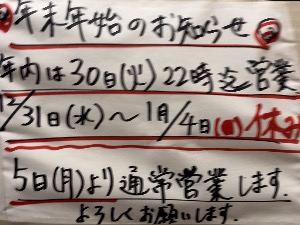 年末年始のお知らせ
年内は30日(火)22時迄営業
12/31日(水)〜1月/4日(日)休み
5日(月)より通常営業します.
よろしくお願いします.